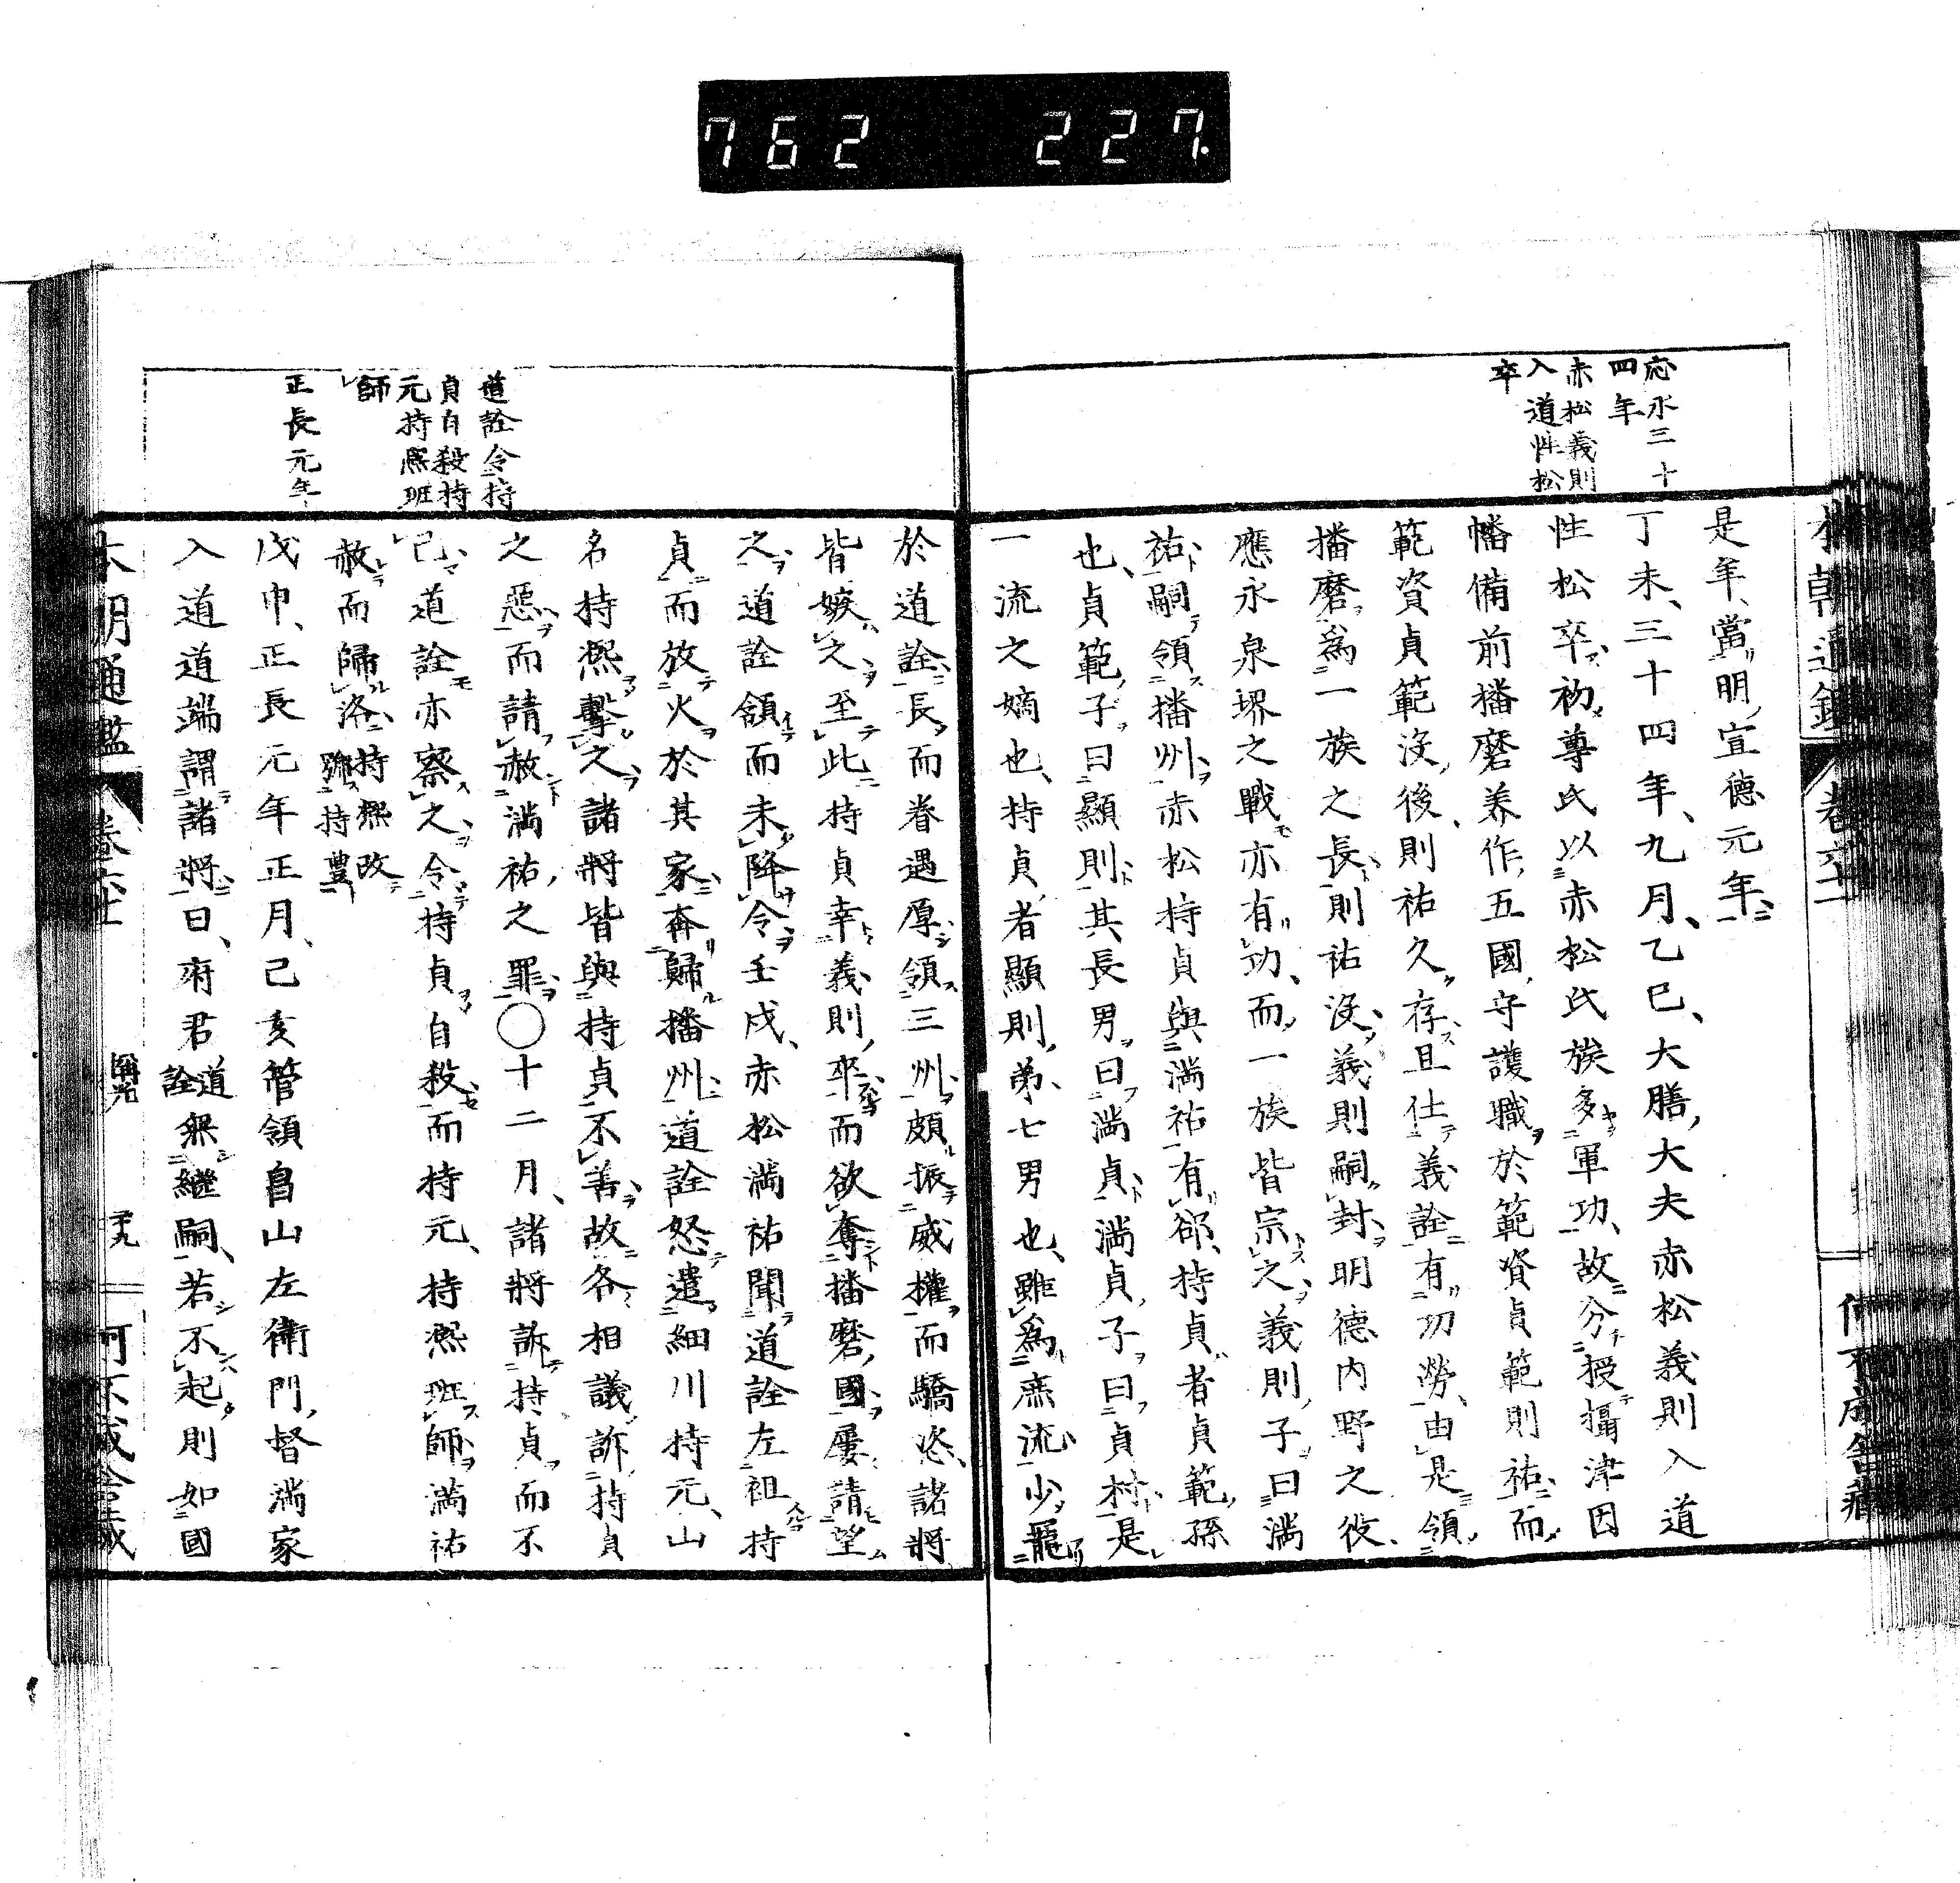 762 227.
応永三十
四年
赤松義則
入道性松
卒
是年、當明宣德元年
丁未、三十四年、九月、乙巳、大膳大夫赤松義則入道
性松卒初尊氏以赤松氏族多軍功、故分授攝津因
幡備前播磨美作五國守護職於範資貞範則祐而
範資貞範沒後、則祐久存且仕義詮有功勞、由是領
播磨爲一族之長則祐沒義則嗣封明德内野之役、
應永泉堺之戰亦有功、而一族皆宗之義則子曰満
祐嗣領播州赤松持貞與満祐有郤、持貞者貞範孫
也、貞範子曰顯則其長男曰満貞満貞子曰貞村是
一流之嫡也、持貞者顯則弟七男也、雖爲庶流少寵
於道詮長而眷遇厚領三州頗振威權而驕恣諸將
皆嫉之至此持貞幸義則卒而欲奪播磨國屢請望
之道詮頷而未降令壬戌、赤松満祐聞道詮左袒持
貞而放火於其家奔歸播州道詮怒遣細川持元、山
名持熈擊之諸將皆與持貞不善故各相議訴持貞
之惡而請赦満祐之罪〇十二月、諸將訴持貞而不
已道詮亦察之令持貞自殺而持元、持熈班師満祐
赦而歸洛持熈改號持豊
戊申、正長元年正月、己亥管領畠山左衛門督満家
入道道端謂諸將曰、府君道詮無繼嗣、若不起則如國
道詮令持
貞自殺持
元持熈班
師
正長元年
本朝通鑑 卷六十一 稱光 三十九